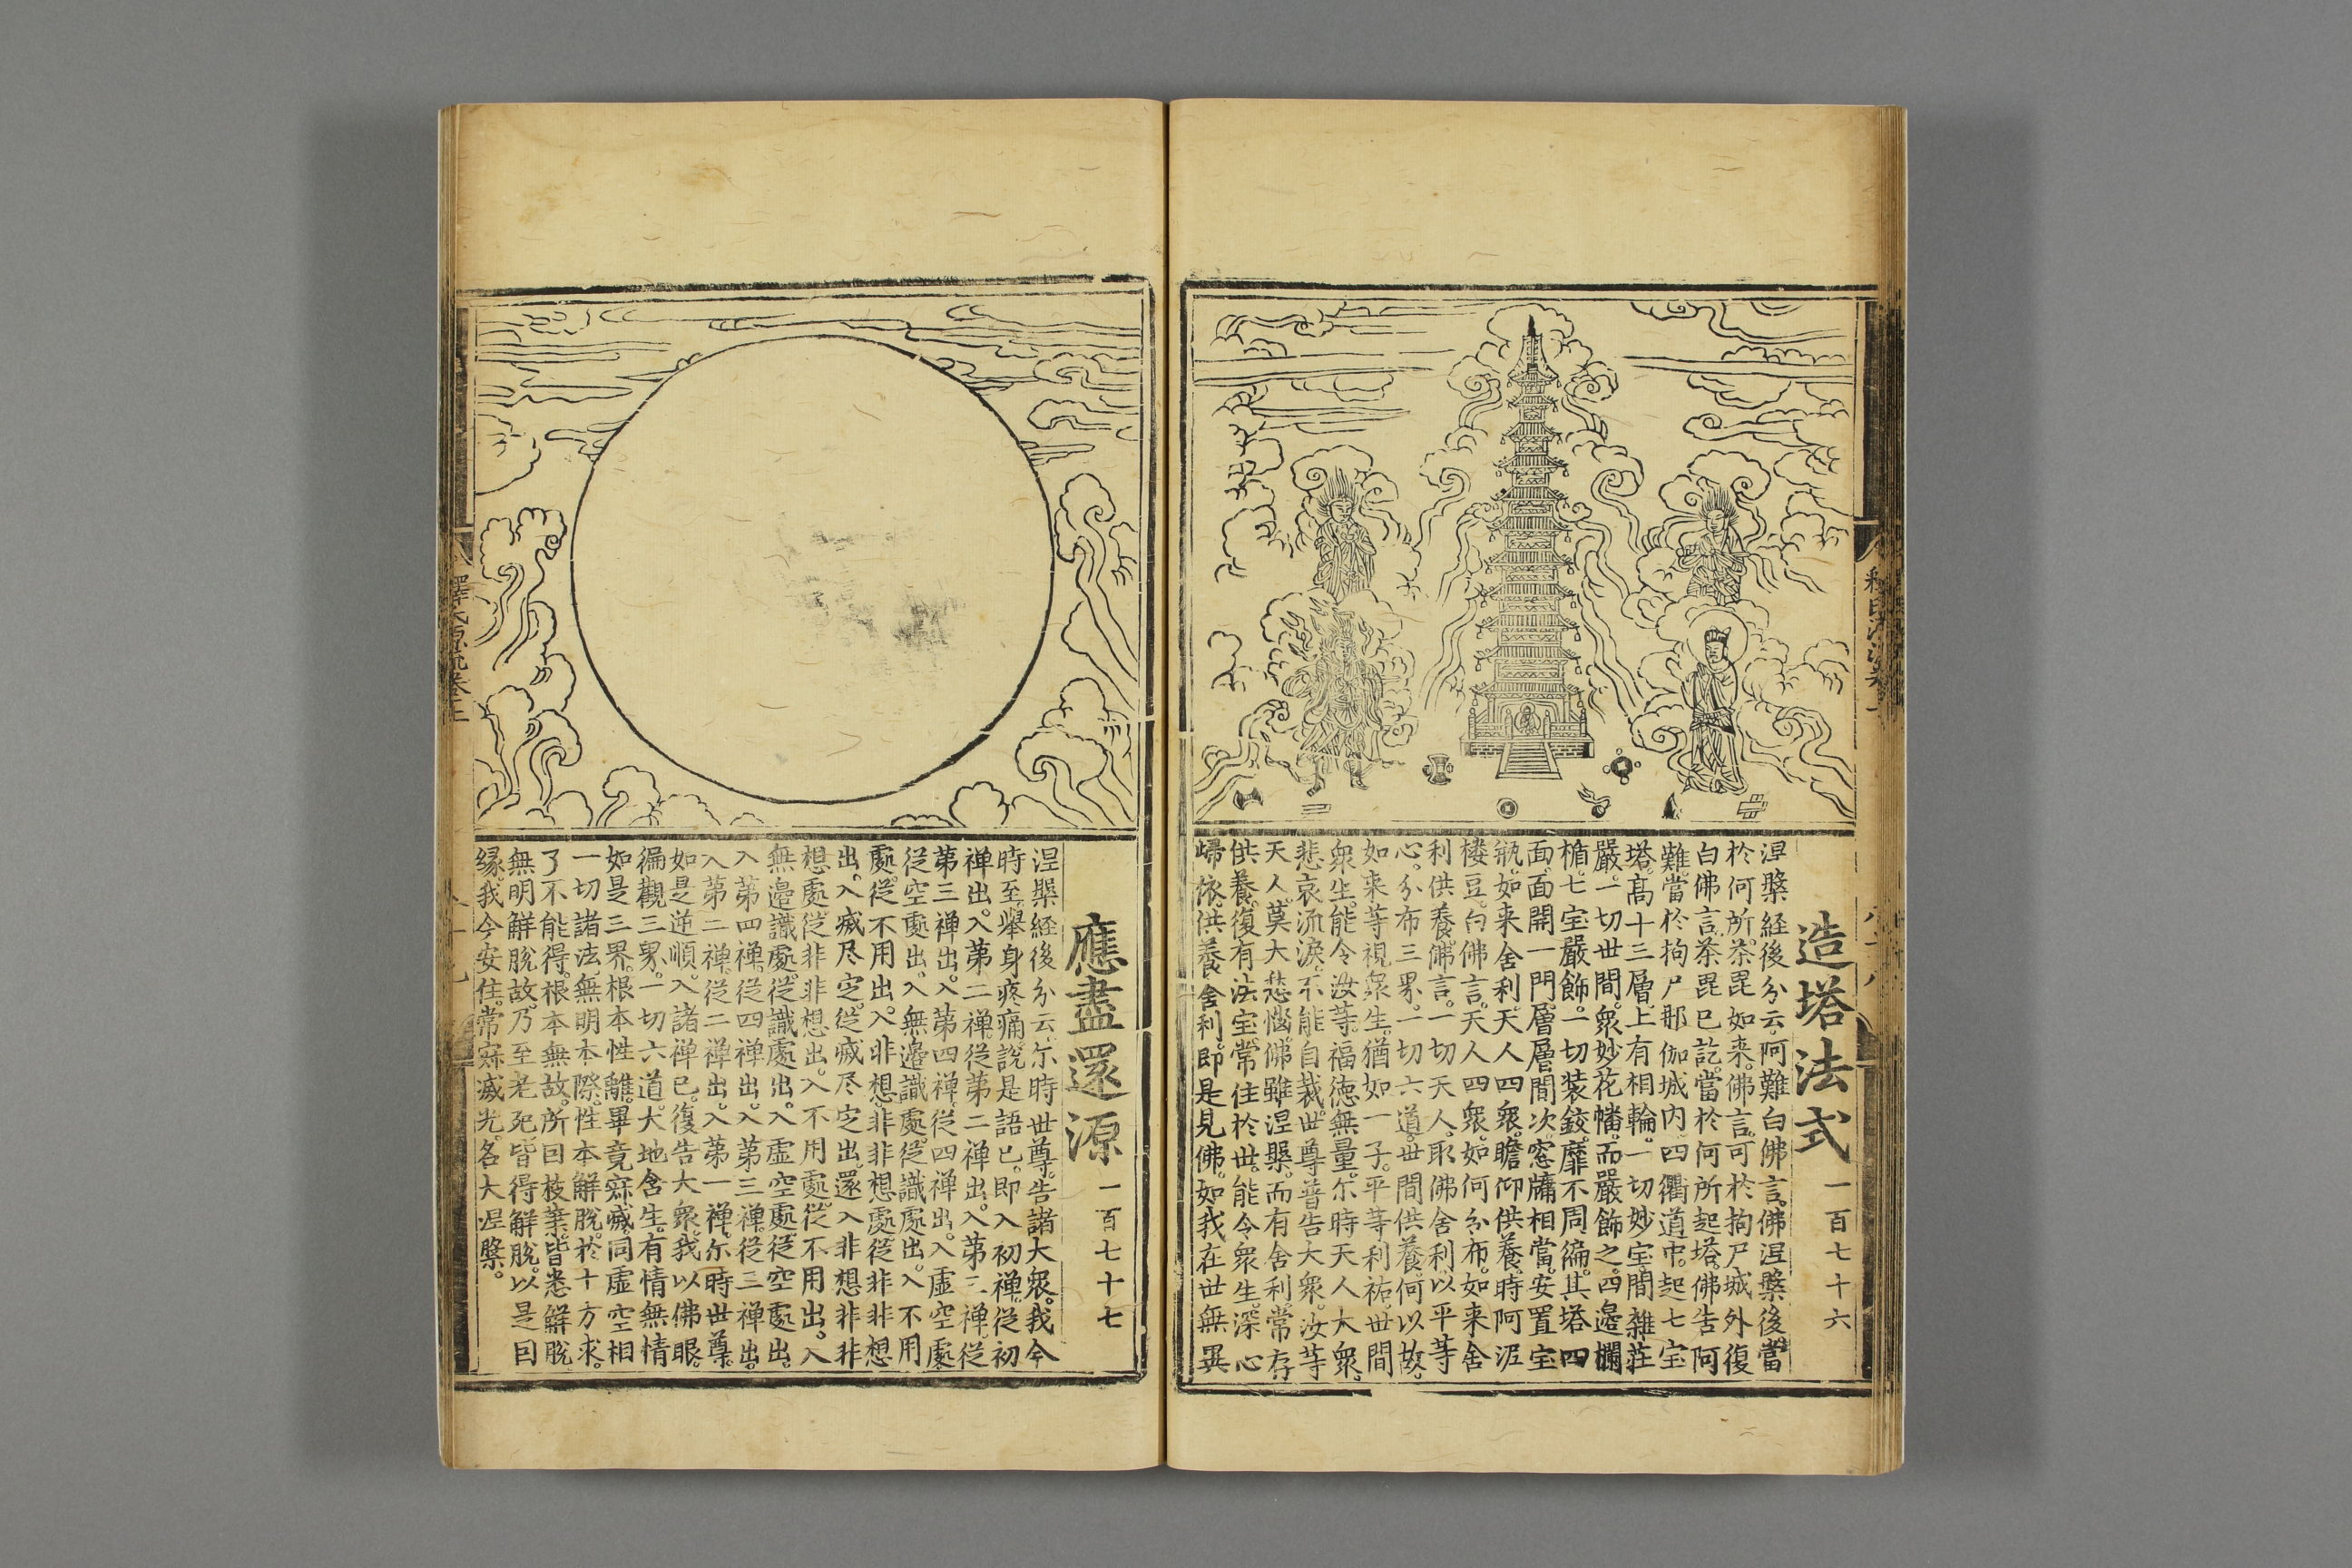 造塔法式 一百七十六
涅槃経後分云。阿難白佛言。佛涅槃後。當
於何所。茶毘如来。佛言。可於拘尸城外。復
白佛言。茶毘已訖。當於何所起塔。佛告阿
難。當於拘尸那伽城内。四衢道中。起七宝
塔。髙十三層。上有相輪。一切妙宝。間雜莊
嚴。一切世間。衆妙花幡。而嚴飾之。四邉欄
楯。七宝嚴飾。一切装鉸。靡不周徧。其塔四
面。面開一門。層層間次。窓牗相當。安置宝
瓶。如来舍利。天人四衆。瞻仰供養。時阿泥
楼豆。白佛言。天人四衆。如何分布。如来舍
利供養。佛言。一切天人。取佛舍利。以平等
心。分布三界。一切六道。世間供養。何以故。
如来等視衆生。猶如一子。平等利祐。世間
衆生。能令汝等。福徳無量。尓時天人大衆。
悲哀流淚。不能自裁。世尊普告大衆。汝等
天人。莫大悲惱。佛雖涅槃。而有舍利。常存
供養。復有法宝。常住於世。能令衆生。深心
歸依。供養舍利。即是見佛。如我在世無異
應盡還源 一百七十七
涅槃経後分云。尓時世尊。告諸大衆。我今
時至。舉身疼痛。說是語已。即入初禅。従初
禅出。入第二禅。従第二禅出。入第三禅。従
第三禅出。入第四禅。従四禅出。入虚空處。
従空處出。入無邉識處。従識處出。入不用
處。従不用出。入非想非非想處。従非非想
出。入滅尽定。従滅尽定出。還入非想非非
想處。従非非想出。入不用處。従不用出。入
無邉識處。従識處出。入虚空處。従空處出。
入第四禅。従四禅出。入第三禅。従三禅出。
入第二禅。従二禅出。入第一禅。尓時世尊。
如是逆順。入諸禅已。復告大衆。我以佛眼。
徧觀三界。一切六道。大地含生。有情無情
如是三界。根本性離。畢竟寂滅。同虚空相
一切諸法。無明本際。性本解脫。於十方求。
了不能得。根本無故。所因枝葉。皆悉解脫
無明解脫故。乃至老死。皆得解脫。以是因
緣。我今安住。常寂滅光。名大涅槃。